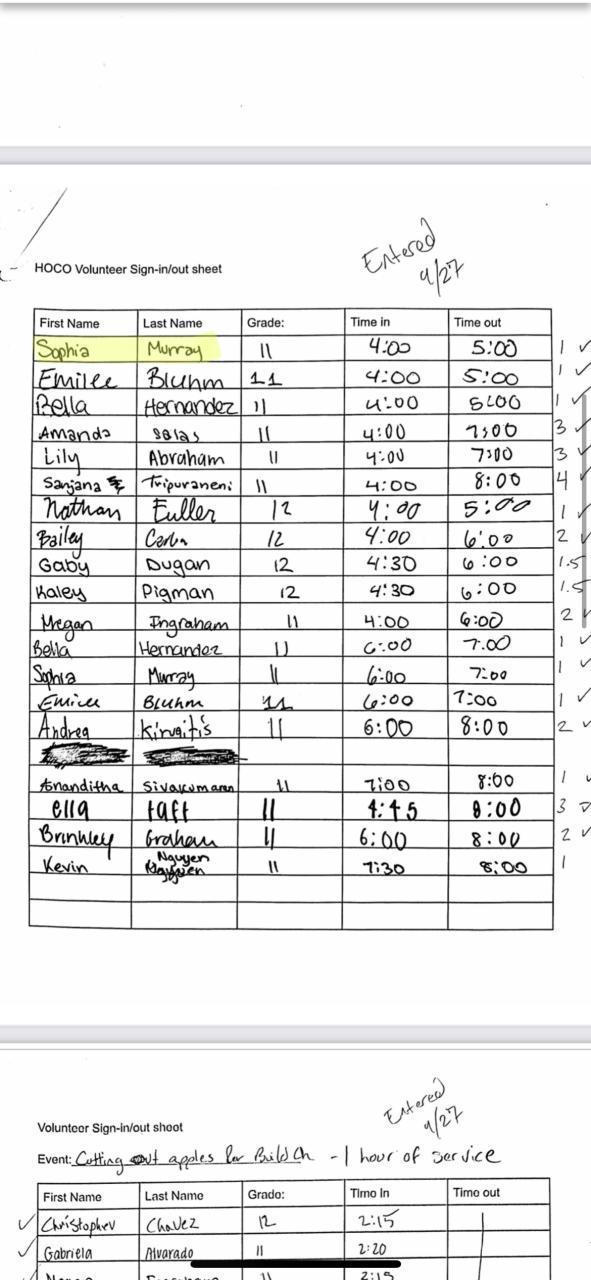 Entered
9/27
HOCO Volunteer Sign-in/out sheet
First Name Last Name Grade: Time in Time out
Sophia Murray 11 4:00 5:00 1 ✓
Emilee Bluhm 11 4:00 5:00 1 ✓
Bella Hernandez 11 4:00 5:00 1 ✓
Amanda Salas 11 4:00 7:00 3 ✓
Lily Abraham 11 4:00 7:00 3 ✓
Sanjana Tripuraneni 11 4:00 8:00 4 ✓
Nathan Fuller 12 4:00 5:00 1 ✓
Bailey 12 4:00 6:00 2 ✓
Gaby Dugan 12 4:30 6:00 1.5
Kaley Pigman 12 4:30 6:00 1.5
Megan Ingraham 11 4:00 6:00 2 ✓
Bella Hernandez 11 6:00 7:00 1 ✓
Sophia Murray 11 6:00 7:00 1 ✓
Emilee Bluhm 11 6:00 7:00 1 ✓
Andrea Kirvaitis 11 6:00 8:00 2 ✓
Ananditha Sivakumaran 11 7:00 8:00 1 ✓
ella taft 11 4:45 8:00 3
Brinkley Graham 11 6:00 8:00 2 ✓
Kevin Nguyen 11 7:30 8:00 1
Entered
9/27
Volunteer Sign-in/out sheet
Event: Cutting out apples for Build Ch - 1 hour of service
First Name Last Name Grade: Time In Time out
✓ Christopher Chavez 12 2:15
✓ Gabriela Alvarado 11 2:20
11 2:15